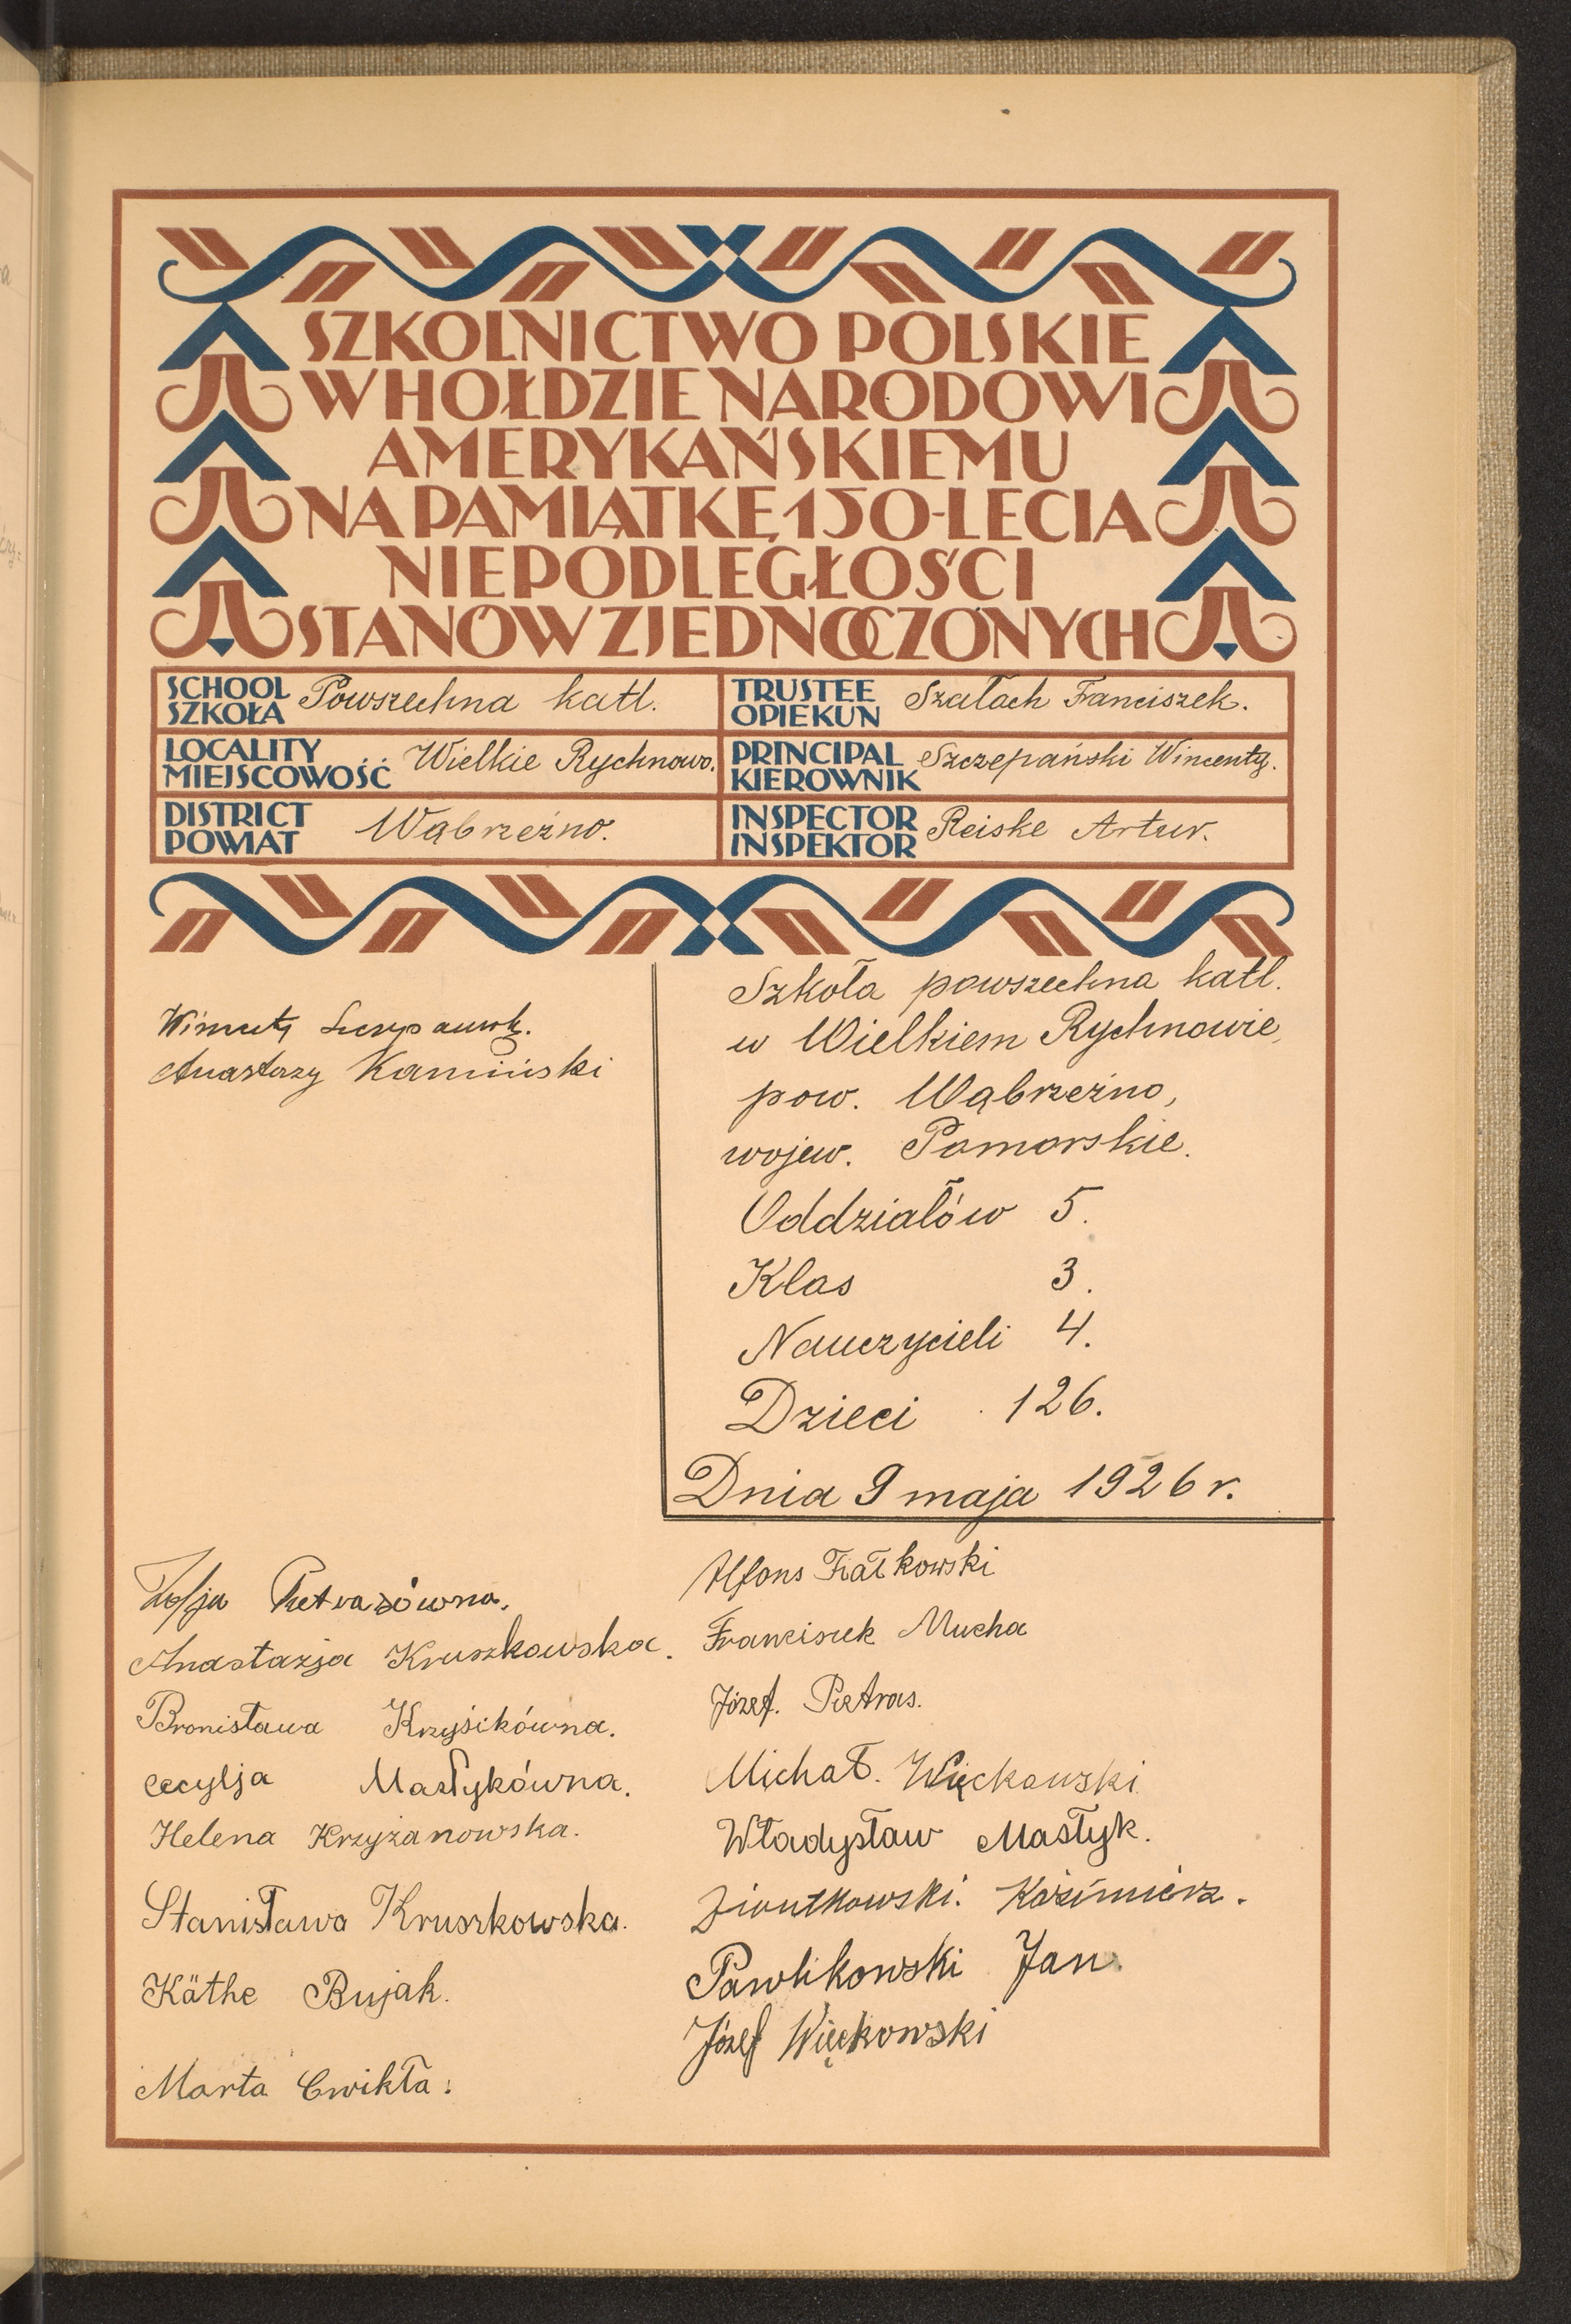 SZKOLNICTWO POLSKIE
W HOŁDZIE NARODOWI
AMERYKAŃSKIEMU
NA PAMIĄTKĘ 150-LECIA
NIEPODLEGŁOŚCI
STANÓW ZJEDNOCZONYCH
SCHOOL
SZKOŁA
Powszechna katl.
TRUSTEE
OPIEKUN
Szałach Franciszek.
LOCALITY
MIEJSCOWOŚĆ
Wielkie Rychnowo.
PRINCIPAL
KIEROWNIK
Szczepański Wincenty.
DISTRICT
POWIAT
Wąbrzeźno.
INSPECTOR
INSPEKTOR
Reiske Artur.
Wincenty Szczepański.
Anastazy Kamiński
Szkoła powszechna katl.
w Wielkiem Rychnowie,
pow. Wąbrzeźno,
wojew. Pomorskie.
Oddziałów 5.
Klas 3.
Nauczycieli 4.
Dzieci 126.
Dnia 9 maja 1926 r.
Zofja Pietrasówna.
Anastazja Kruszkowska.
Bronisława Krzyśikówna.
Cecylja Masłykówna.
Helena Krzyżanowska.
Stanisława Kruszkowska.
Käthe Bujak.
Marta Cwikła.
Alfons Fiałkowski
Franciszek Mucha
Józef. Pietras.
Michał. Więckowski.
Władysław Masłyk.
Kazimierz.
Pawlikowski Jan.
Józef Więckowski